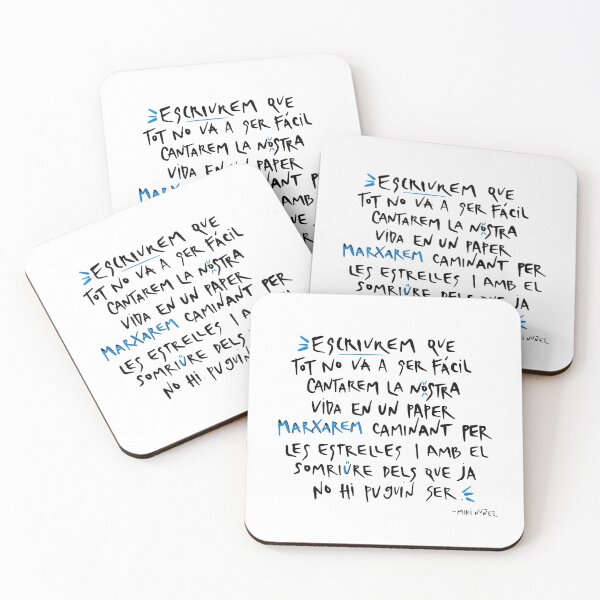 ESCRIUREM QUE
TOT NO VA A SER FÁCIL
CANTAREM LA NOSTRA
VIDA EN UN PAPER
CAMINANT PER
I AMB
ESCRIUREM QUE
TOT NO VA A SER FÁCIL
CANTAREM LA NOSTRA
VIDA EN UN PAPER
MARXAREM CAMINANT PER
LES ESTRELLES I AMB EL
SOMRIURE DELS QUE JA
ESCRIUREM QUE
TOT NO VA A SER FÁCIL
CANTAREM LA NOSTRA
VIDA EN UN PAPER
MARXAREM CAMINANT PER
LES ESTRELLES I A
SOMRIURE DELS
NO HI PUGUIN
ESCRIUREM QUE
TOT NO VA A SER FÁCIL
CANTAREM LA NOSTRA
VIDA EN UN PAPER
MARXAREM CAMINANT PER
LES ESTRELLES I AMB EL
SOMRIURE DELS QUE JA
NO HI PUGUIN SER.
-MIKI NÚÑEZ